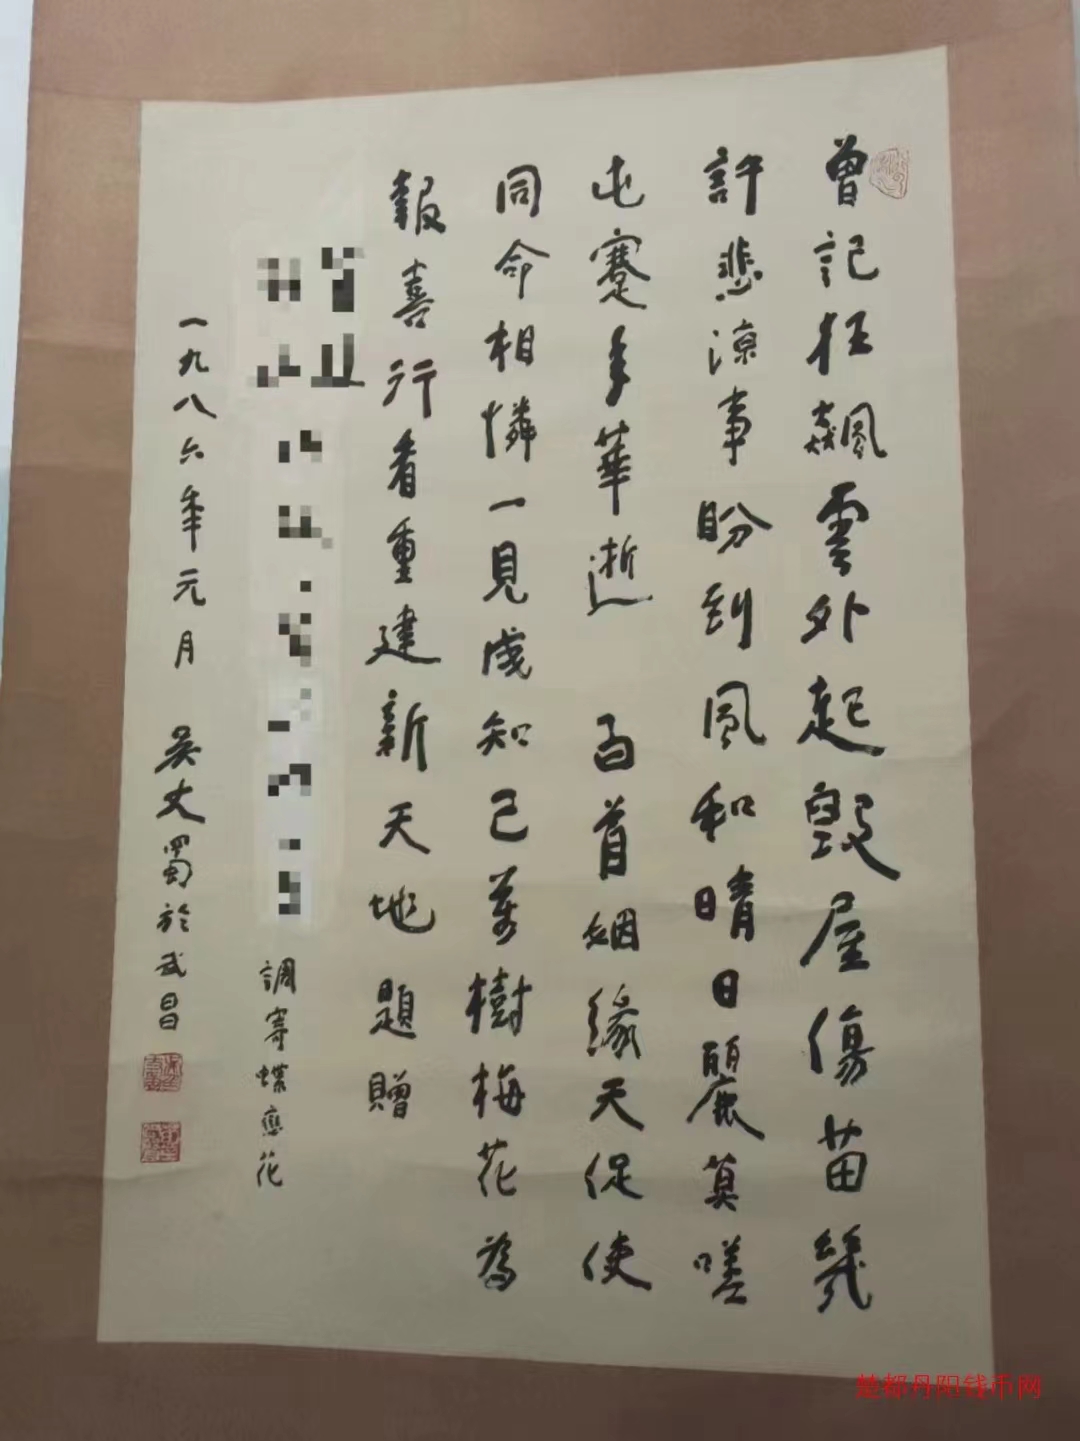 曾記狂飆雲外起毀屋傷苗幾
許悲涼事盼到風和晴日麗莫嗟
屯蹇年華逝 白首姻緣天促使
同命相憐一見成知己萬樹梅花為
報喜行看重建新天地題贈
調寄蝶戀花
一九八六年元月 吳丈蜀於武昌
楚都丹阳钱币网